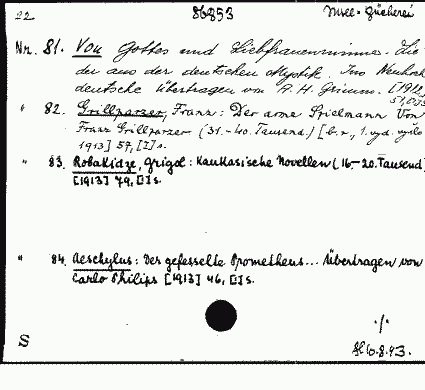 22 86853 Insel-Bücherei
Nr. 81. Von Gottes und Liebfrauenminne. Lie-
der aus der deutschen Mystik. Ins Neuhoch
deutsche übertragen von A. H. Grimm. [1912
51, [1] s
" 82. Grillparzer, Franz: Der arme Spielmann Von
Franz Grillparzer (31.-40. Tausend.) [b.r., 1. wyd. wyszło
1913] 57, [1] s.
" 83. Robakidze, Grigol: Kaukasische Novellen (16.-20. Tausend)
[1913] 79, [1] s.
" 84. Aeschylus: Der gefesselte Prometheus... Übertragen von
Carlo Philips [1913] 46, [1] s.
./.
S 10.8.43.